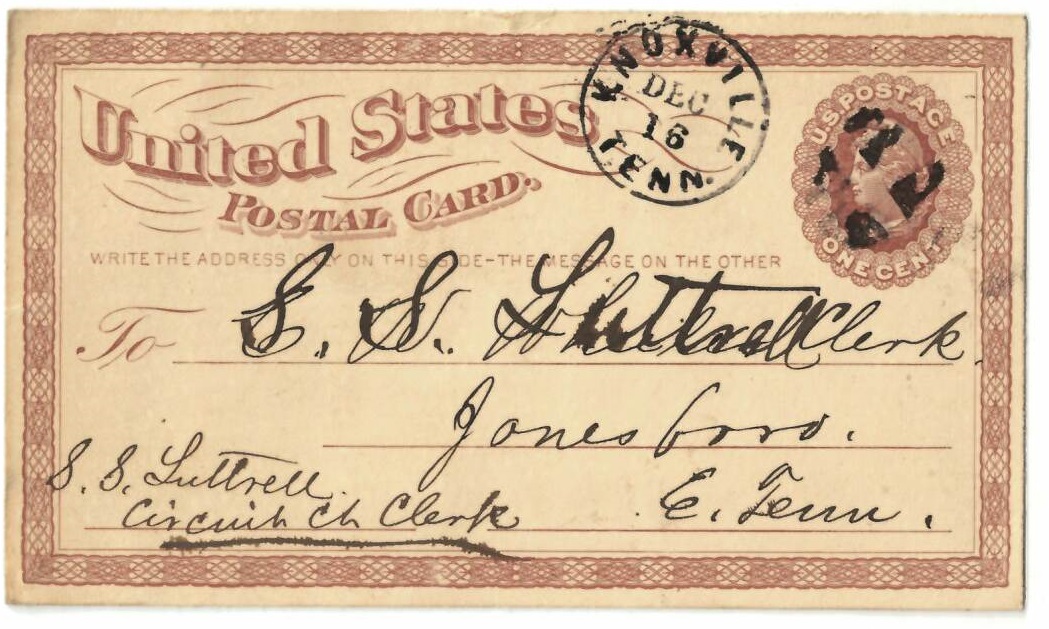 United States
POSTAL CARD.
KNOXVILLE
DEC
16
TENN.
U.S. POSTAGE
ONE CENT
WRITE THE ADDRESS ONLY ON THIS SIDE-THE MESSAGE ON THE OTHER
To S. S. Luttrell Clerk
Jonesboro.
E. Tenn.
S. S. Luttrell
Circuit Ct Clerk